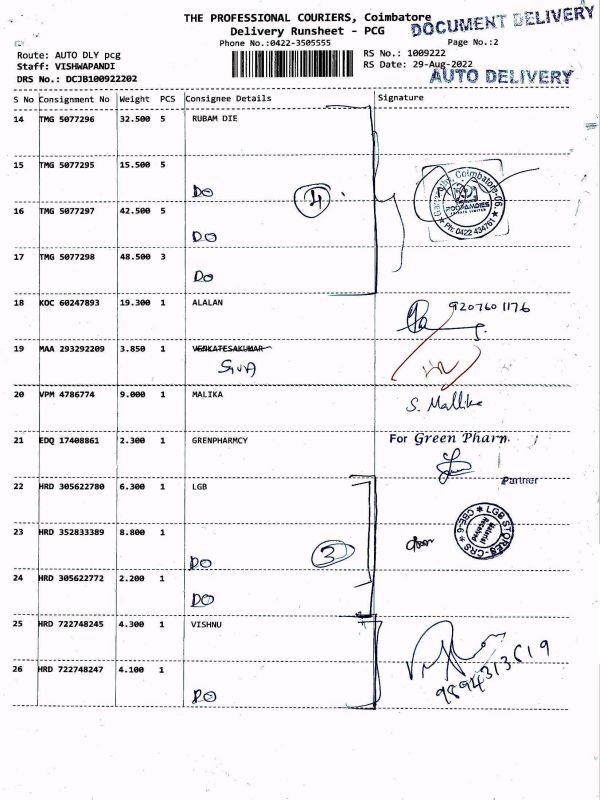 THE PROFESSIONAL COURIERS, Coimbatore
DOCUMENT DELIVERY
Delivery Runsheet - PCG
Phone No.:0422-3505555
Page No.:2
Route: AUTO DLY pcg
RS No.: 1009222
Staff: VISHWAPANDI
RS Date: 29-Aug-2022
DRS No.: DCJB100922202
AUTO DELIVERY
S No Consignment No Weight PCS Consignee Details Signature
14 TMG 5077296 32.500 5 RUBAM DIE
15 TMG 5077295 15.500 5
DO
4
Coimbatore-06.
POOPANDIES
Ph: 0422 434761
16 TMG 5077297 42.500 5
DO
17 TMG 5077298 48.500 3
DO
18 KOC 60247893 19.300 1 ALALAN
9207601176
19 MAA 293292209 3.850 1 VENKATESAKUMAR
SIVA
20 VPM 4786774 9.000 1 MALIKA
S. Mallika
21 EDQ 17408861 2.300 1 GRENPHARMCY
For Green Pharm
Partner
22 HRD 305622780 6.300 1 LGB
LGB STORES-CRS CBE-6
Material Received
23 HRD 352833389 8.800 1
DO
3
24 HRD 305622772 2.200 1
DO
25 HRD 722748245 4.300 1 VISHNU
26 HRD 722748247 4.100 1
DO
9894313619